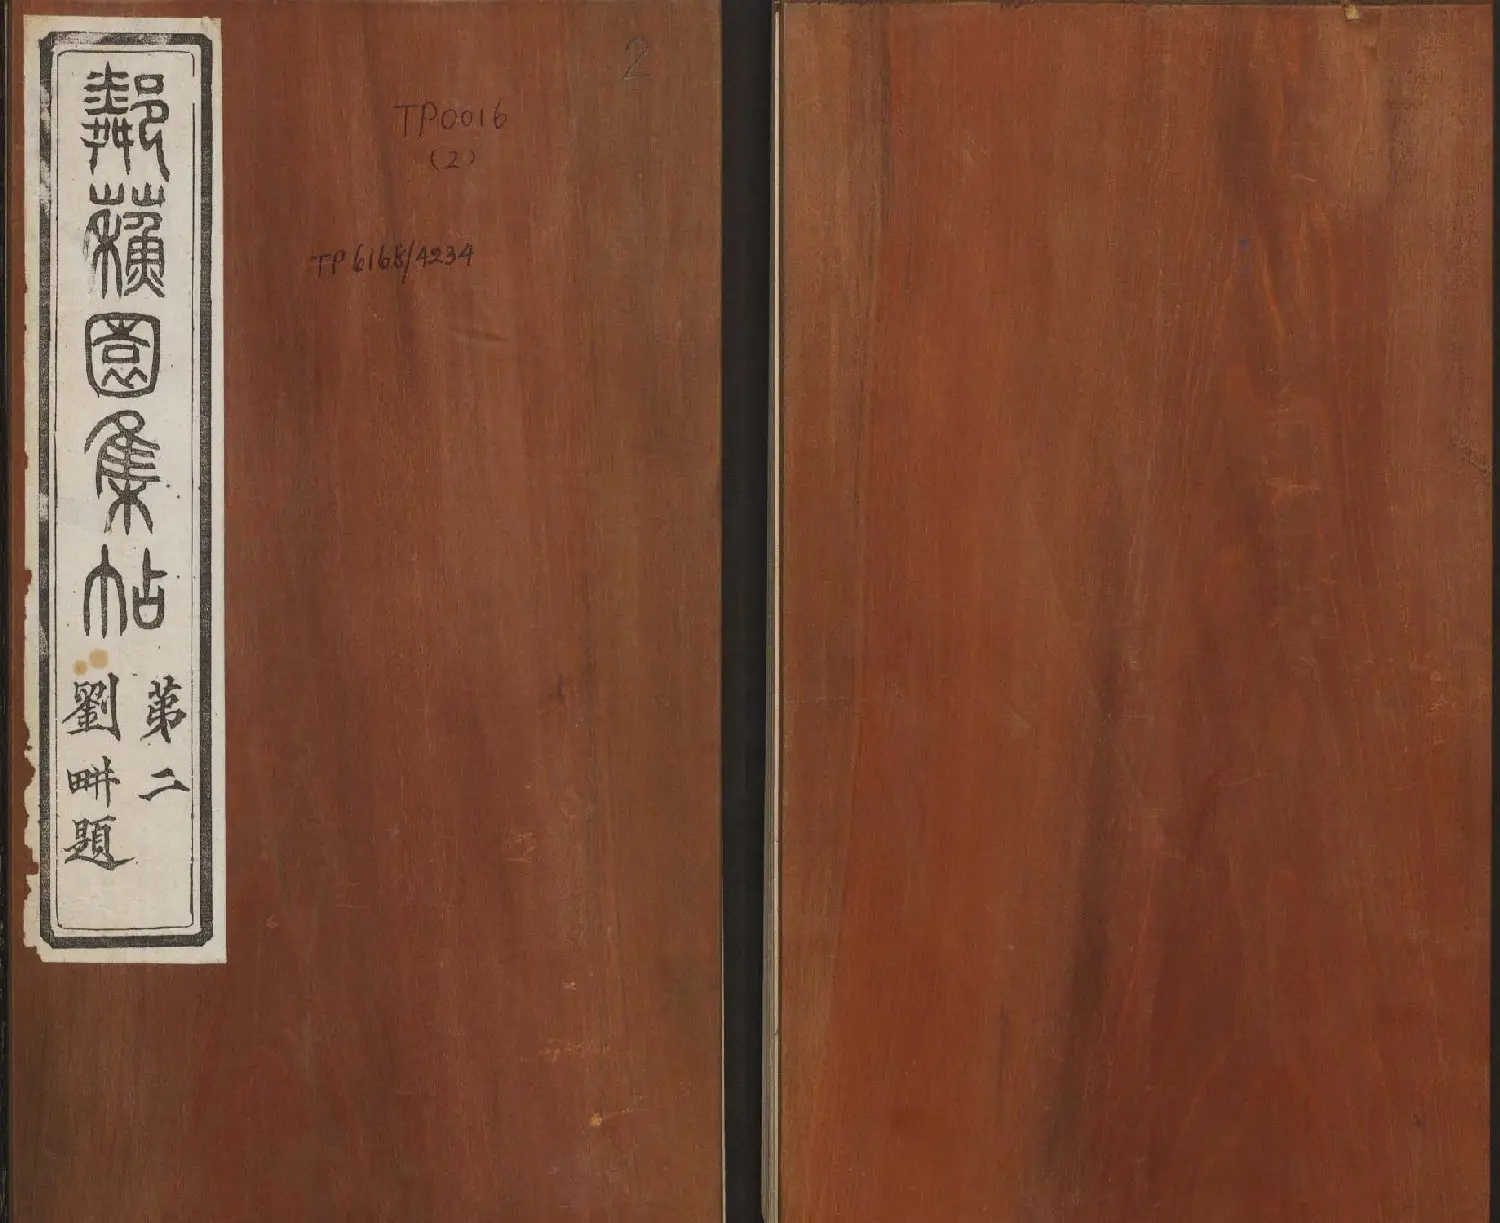 鄰蘇園集帖
第二
劉畊題
2
TP0016
(2)
TP6168/4234